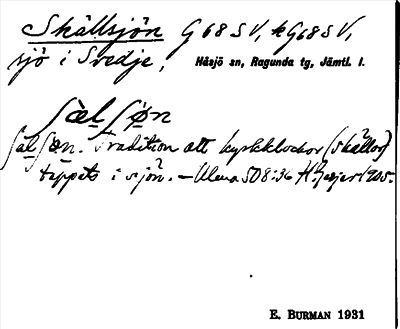 Skällsjön G 68 SV, kG68 SV,
sjö i Svedje, Håsjö sn, Ragunda tg, Jämtl. l.
ʃàlʃø̀n
ʃàlʃøn. Tradition att kyrkklockor (skällor)
tappats i sjön. – SD8:36 1905.
E. BURMAN 1931